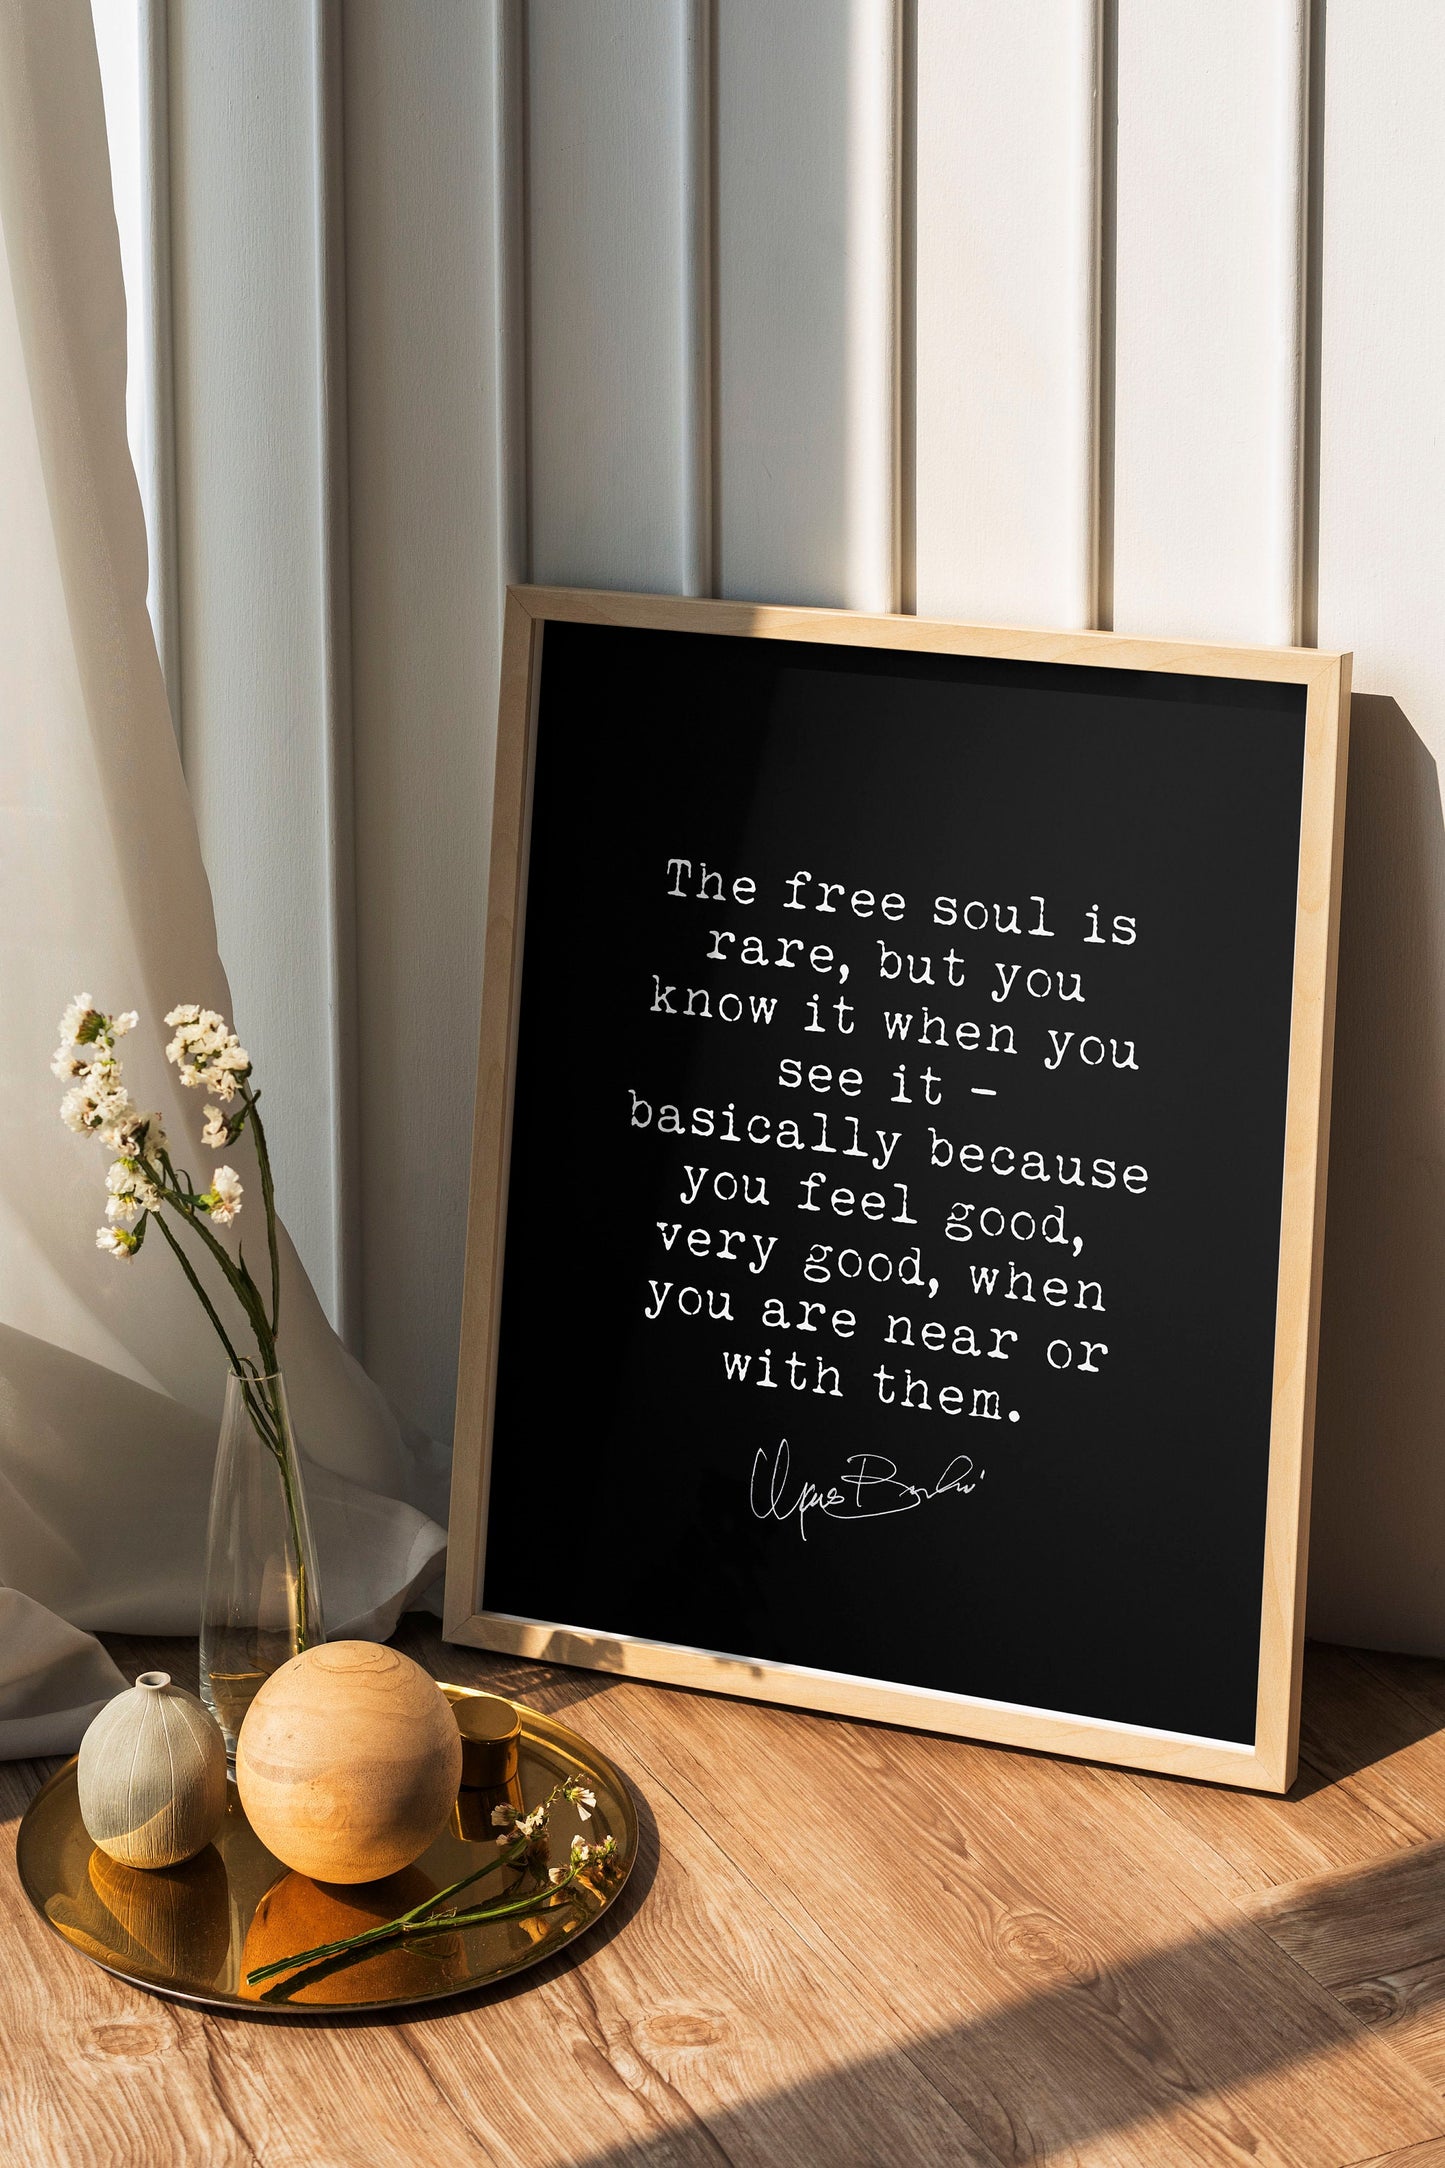 The free soul is
rare, but you
know it when you
see it -
basically because
you feel good,
very good, when
you are near or
with them.